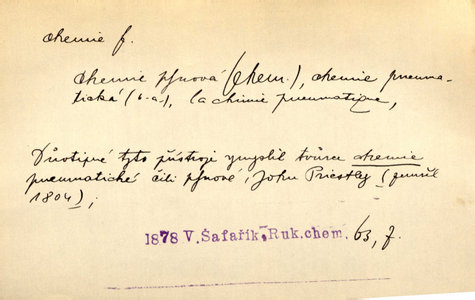 chemie f.
chemie plynová (chem.), chemie pneuma-
tická (t.a.), la chimie pneumatique,
Důvtipné tyto přístroje vymyslil tvůrce chemie
pneumatické čili plynové, John Priestley (zemřel
1804);
1878 V. Šafařík, Ruk. chem. 63, 7.